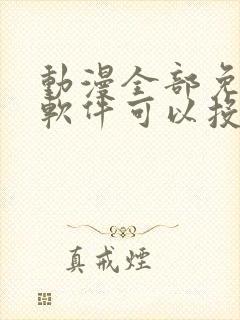 動漫全部免
軟件可以投
真戒煙